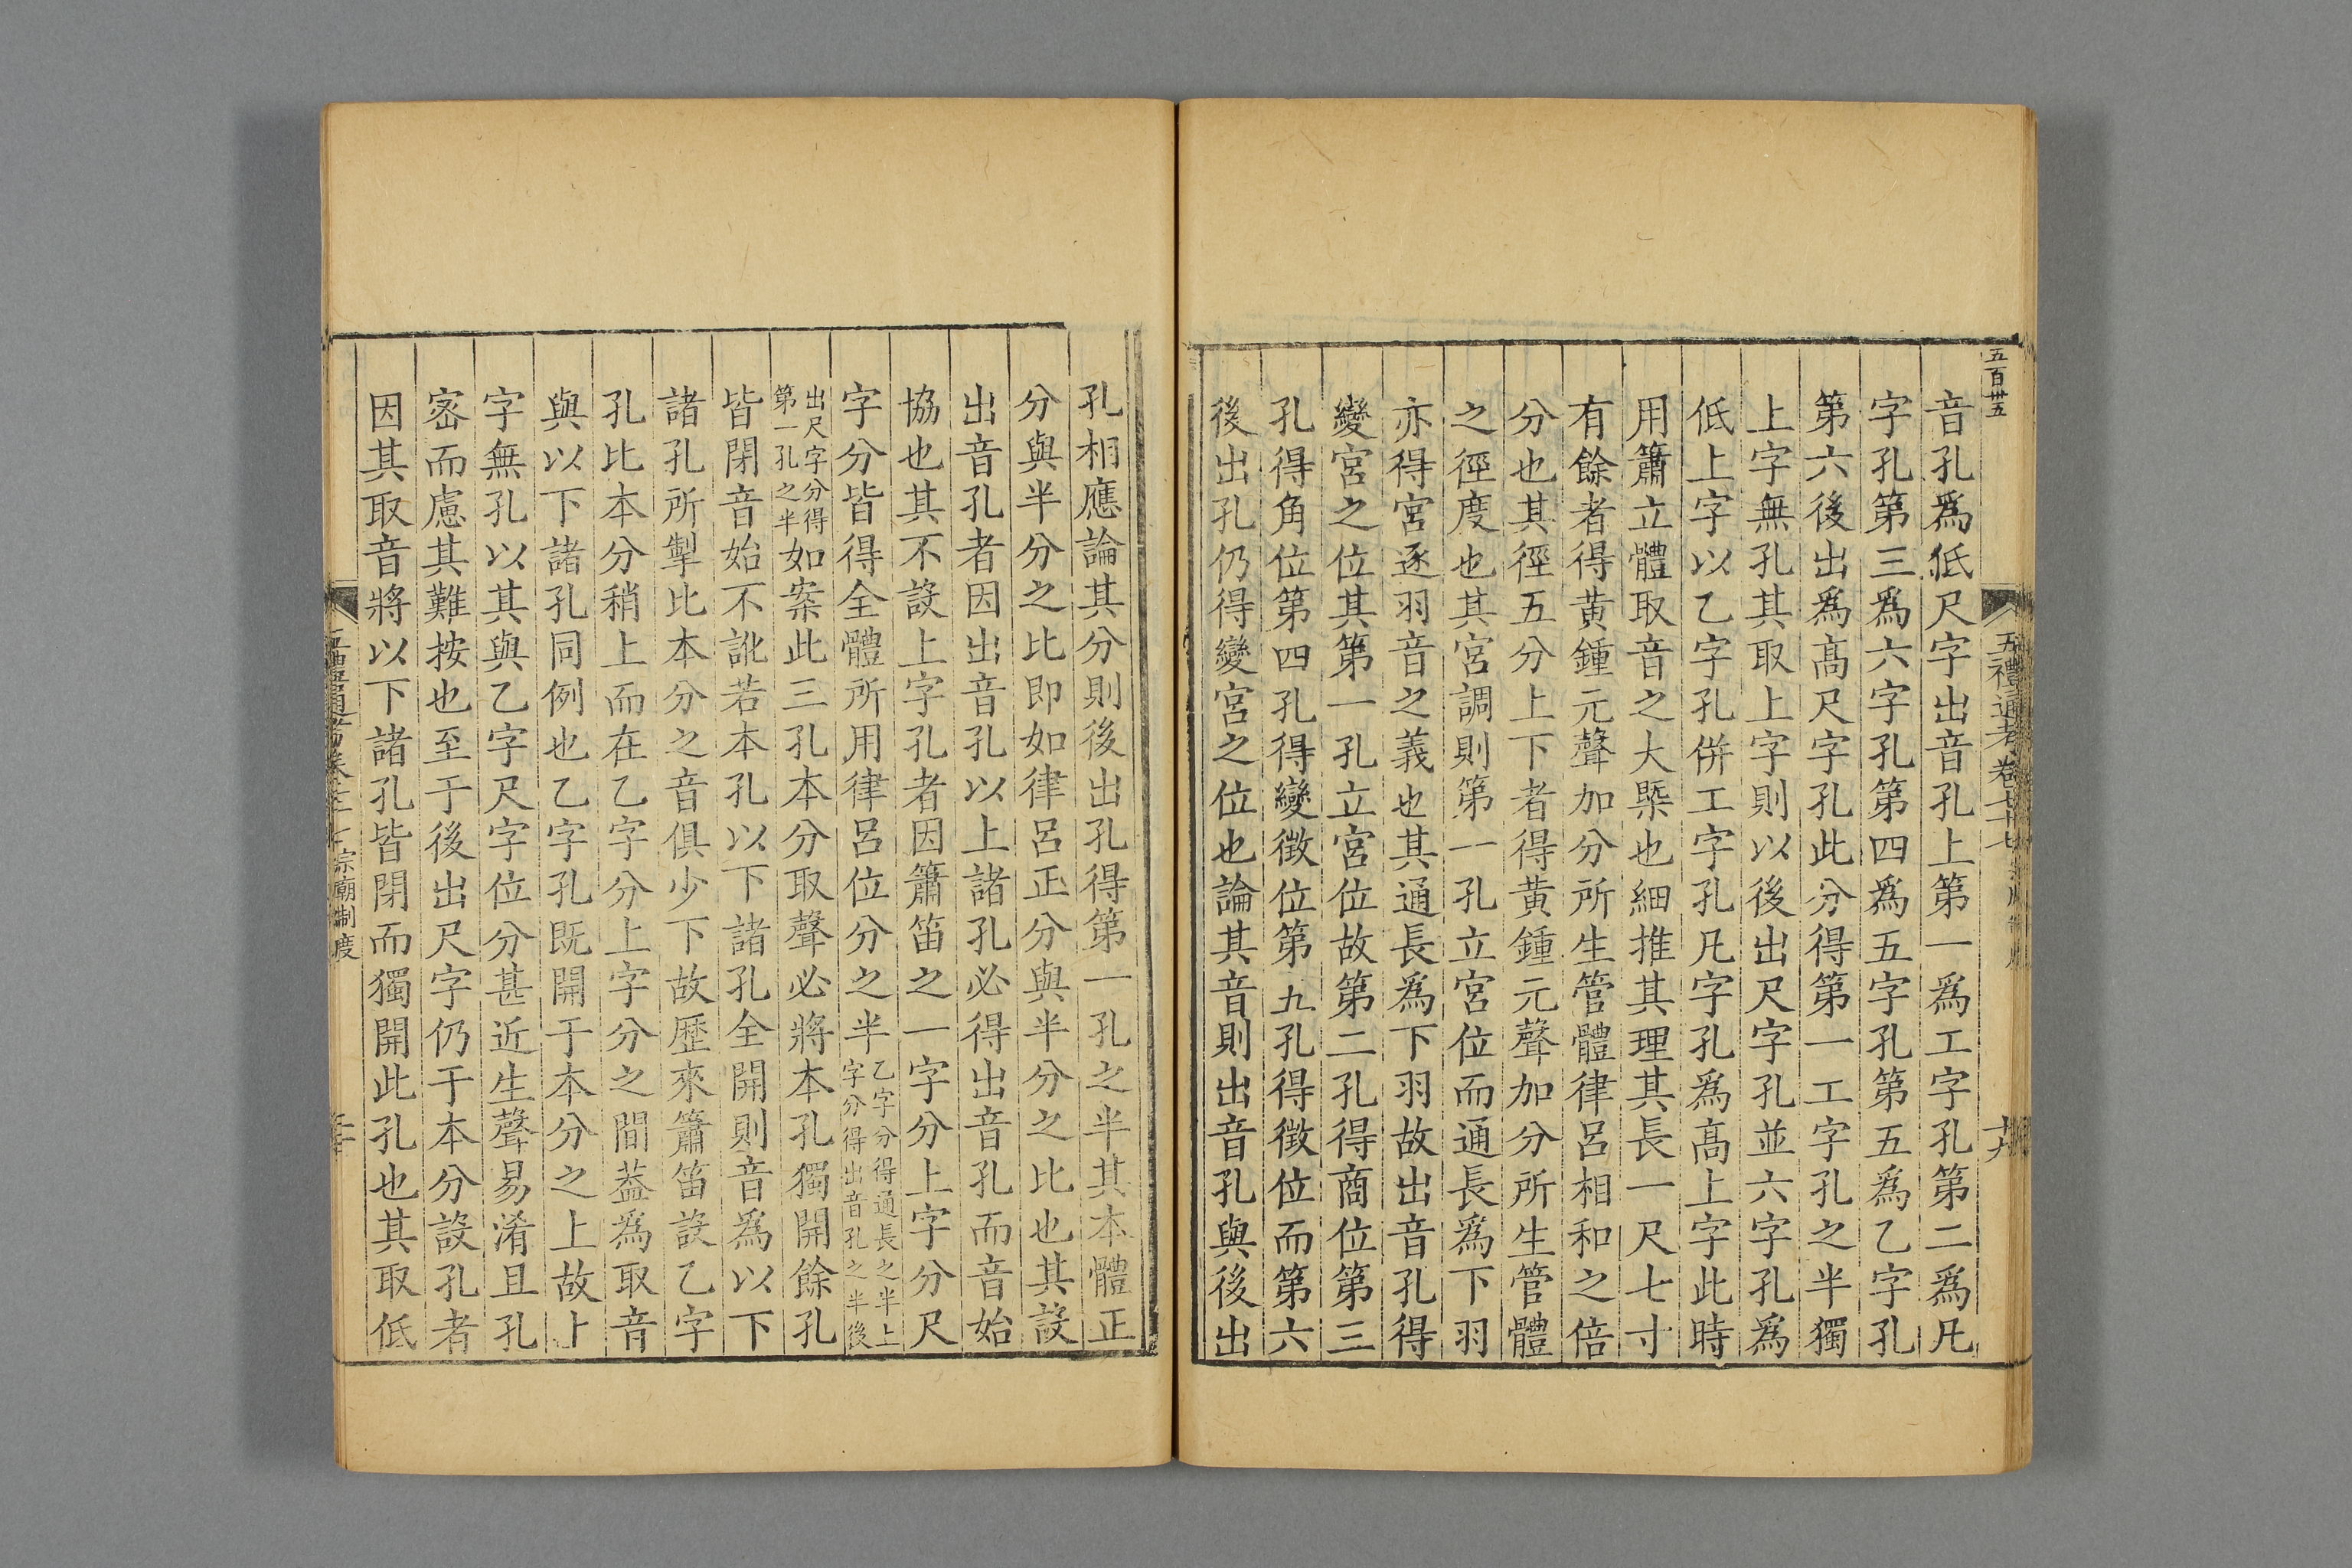 五百卅五
五禮通考卷七十七
十九
音孔爲低尺字出音孔上第一爲工字孔第二爲凡
字孔第三爲六字孔第四爲五字孔第五爲乙字孔
第六後出爲髙尺字孔此分得第一工字孔之半獨
上字無孔其取上字則以後出尺字孔並六字孔爲
低上字以乙字孔併工字孔凡字孔爲髙上字此時
用簫立體取音之大槩也細推其理其長一尺七寸
有餘者得黄鍾元聲加分所生管體律呂相和之倍
分也其徑五分上下者得黄鍾元聲加分所生管體
之徑度也其宮調則第一孔立宮位而通長爲下羽
亦得宮逐羽音之義也其通長爲下羽故出音孔得
變宮之位其第一孔立宮位故第二孔得商位第三
孔得角位第四孔得變徵位第五孔得徵位而第六
後出孔仍得變宮之位也論其音則出音孔與後出
孔相應論其分則後出孔得第一孔之半其本體正
分與半分之比即如律呂正分與半分之比也其設
出音孔者因出音孔以上諸孔必得出音孔而音始
協也其不設上字孔者因簫笛之一字分上字分尺
字分皆得全體所用律呂位分之半乙字分得通長之半上字分得出音孔之半後
出尺字分得第一孔之半如案此三孔本分取聲必將本孔獨開餘孔
皆閉音始不訛若本孔以下諸孔全開則音爲以下
諸孔所掣比本分之音俱少下故歴來簫笛設乙字
孔比本分稍上而在乙字分上字分之間葢爲取音
與以下諸孔同例也乙字孔既開于本分之上故上
字無孔以其與乙字尺字位分甚近生聲易淆且孔
宻而慮其難按也至于後出尺字仍于本分設孔者
因其取音將以下諸孔皆閉而獨開此孔也其取低
宗廟制度